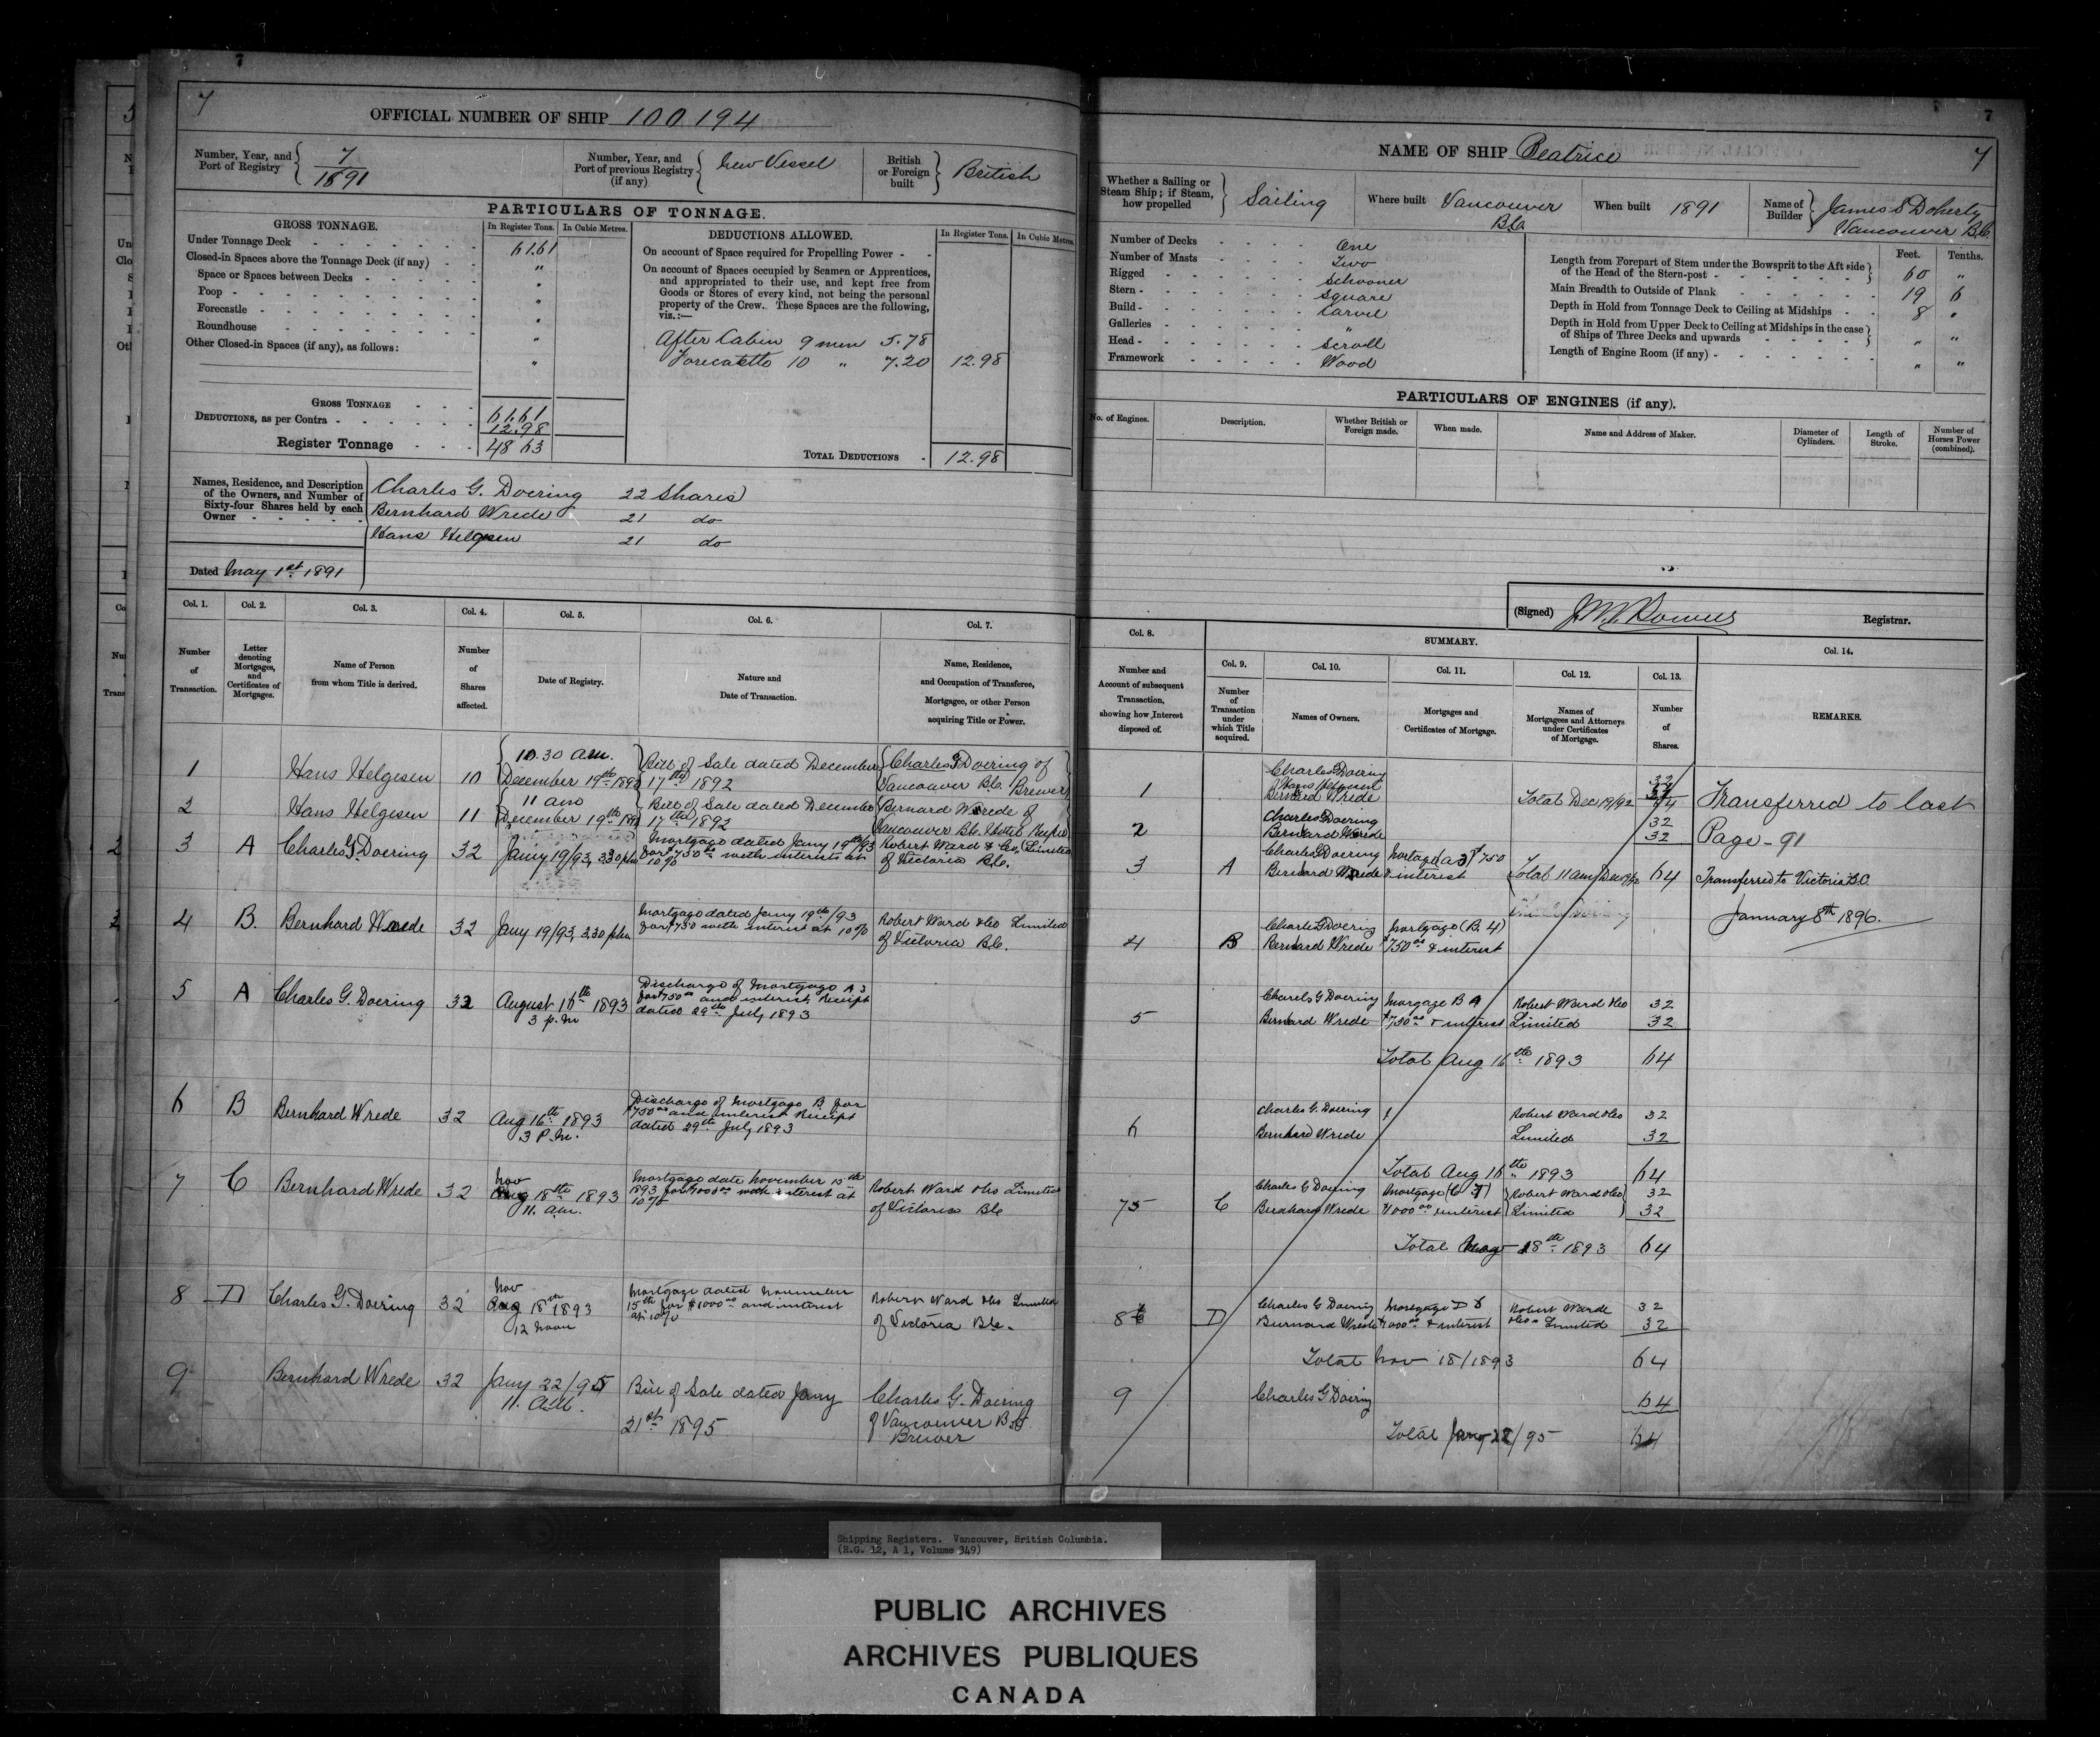 7
OFFICIAL NUMBER OF SHIP 100194
Number, Year, and
Port of Registry
7
1891
Number, Year, and
Port of previous Registry
(if any)
New Vessel
British
or Foreign
built
British
PARTICULARS OF TONNAGE.
GROSS TONNAGE.
In Register Tons.
In Cubic Metres.
Under Tonnage Deck 61.61
Closed-in Spaces above the Tonnage Deck (if any) "
Space or Spaces between Decks "
Poop "
Forecastle "
Roundhouse "
Other Closed-in Spaces (if any), as follows: "
GROSS TONNAGE 61.61
DEDUCTIONS, as per Contra 12.98
Register Tonnage 48 63
DEDUCTIONS ALLOWED.
In Register Tons.
In Cubic Metres.
On account of Space required for Propelling Power
On account of Spaces occupied by Seamen or Apprentices,
and appropriated to their use, and kept free from
Goods or Stores of every kind, not being the personal
property of the Crew. These Spaces are the following,
viz.:—
After Cabin 9 men 5.78
10 " 7.20 12.98
TOTAL DEDUCTIONS 12.98
Names, Residence, and Description
of the Owners, and Number of
Sixty-four Shares held by each
Owner
Charles G. Doering 22 Shares
Bernhard Wrede 21 do
Hans Helgesen 21 do
Dated May 1st 1891
Col. 1.
Number
of
Transaction.
Col. 2.
Letter
denoting
Mortgages,
and
Certificates of
Mortgages.
Col. 3.
Name of Person
from whom Title is derived.
Col. 4.
Number
of
Shares
affected.
Col. 5.
Date of Registry.
Col. 6.
Nature and
Date of Transaction.
Col. 7.
Name, Residence,
and Occupation of Transferee,
Mortgagee, or other Person
acquiring Title or Power.
1 Hans Helgesen 10
10.30 am.
December 19th 1892
Bill of Sale dated December
17th 1892
Charles G Doering of
Vancouver B.C. Brewer
2 Hans Helgesen 11
11 am
December 19th 1892
Bill of Sale dated December
17th 1892
Bernard Wrede of
Vancouver B.C. Hotel Keeper
3 A Charles G. Doering 32
Jany 19/93, 3.30 pm
Mortgage dated Jany 19th/93
for $750 00 with interest at
10%
Robert Ward & Co, Limited
of Victoria B.C.
4 B. Bernhard Wrede 32
Jany 19/93, 3.30 pm
Mortgage dated Jany 19th/93
for $750 with interest at 10%
Robert Ward & Co Limited
of Victoria B.C.
5 A Charles G. Doering 32
August 16th 1893
3 p.m
Discharge of Mortgage A 3
for $750 00 and interest, Receipt
dated 29th July 1893
6 B Bernhard Wrede 32
Aug 16th 1893
3 P.M.
Discharge of Mortgage B for
$750 00 and interest Receipt
dated 29th July 1893
7 C Bernhard Wrede 32
Nov
Aug 18th 1893
11. a.m.
Mortgage date November 15th
1893 for $1000 00 with interest at
10%
Robert Ward & Co Limited
of Victoria B.C.
8 D Charles G. Doering 32
Nov
Aug 18th 1893
12 noon
Mortgage dated November
15th for $1000 00 and interest
at 10%
Robert Ward & Co Limited
of Victoria B.C.
9 Bernhard Wrede 32
Jany 22/95
11. a.m.
Bill of Sale dated Jany
21st 1895
Charles G. Doering
of Vancouver B.C.
Brewer
7
NAME OF SHIP Beatrice
7
Whether a Sailing or
Steam Ship; if Steam,
how propelled
Sailing
Where built Vancouver
B.C.
When built 1891
Name of
Builder
James S Doherty
Vancouver B.C.
Number of Decks One
Number of Masts Two
Rigged Schooner
Stern Square
Build Carvel
Galleries "
Head Scroll
Framework Wood
Feet. Tenths.
Length from Forepart of Stem under the Bowsprit to the Aft side
of the Head of the Stern-post 60 "
Main Breadth to Outside of Plank 19 6
Depth in Hold from Tonnage Deck to Ceiling at Midships 8 "
Depth in Hold from Upper Deck to Ceiling at Midships in the case
of Ships of Three Decks and upwards " "
Length of Engine Room (if any) " "
PARTICULARS OF ENGINES (if any).
No. of Engines.
Description.
Whether British or
Foreign made.
When made.
Name and Address of Maker.
Diameter of
Cylinders.
Length of
Stroke.
Number of
Horses Power
(combined).
(Signed)
Registrar.
Col. 8.
Number and
Account of subsequent
Transaction,
showing how Interest
disposed of.
SUMMARY.
Col. 9.
Number
of
Transaction
under
which Title
acquired.
Col. 10.
Names of Owners.
Col. 11.
Mortgages and
Certificates of Mortgage.
Col. 12.
Names of
Mortgagees and Attorneys
under Certificates
of Mortgage.
Col. 13.
Number
of
Shares.
Col. 14.
REMARKS.
1
Charles Doering
Hans Helgesen
Bernard Wrede
Total Dec 19/92
2
Charles Doering 32
Bernard Wrede 32
3 A
Charles G Doering Mortgage (A 3) $750
Bernhard Wrede & interest
Total 11 am Dec 19/92 64
4 B
Charles G Doering Mortgage (B. 4)
Bernhard Wrede $750 00 & interest
5
Charels G Doering Morgage B 4 Robert Ward & Co 32
Bernhard Wrede $750 00 & interest Limited 32
Total Aug 16th 1893 64
6
Charles G. Doering Robert Ward & Co 32
Bernhard Wrede Limited 32
Total Aug 16th 1893 64
75 C
Charles G Doering Mortgage (C 7) Robert Ward & Co 32
Bernhard Wrede $1000 00 interest Limited 32
Total 18th 1893 64
8 D
Charles G Doering Mortgage D 8 Robert Warde 32
Burnard Wrede $1000 00 & interest & Co Limited 32
Total Nov 18/1893 64
9
Charles G Doering 64
Total Jany 22/95 64
Transferred to last
Page - 91
Transferred to Victoria B.C.
January 8th 1896.
Shipping Registers. Vancouver, British Columbia.
(R.G. 12, A 1, Volume 349)
PUBLIC ARCHIVES
ARCHIVES PUBLIQUES
CANADA